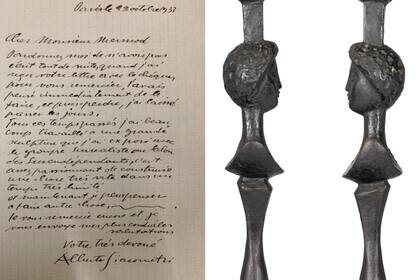 Paris le 2 octobre 1933
Cher Monsieur Mermod
Pardonnez moi de n'avoir pas
écrit tout de suite quand j'ai
reçu votre lettre avec le chèque,
pour vous remercier, j'avais
pensé immédiatement de le
faire, et puis j'ai laissé
passer les jours.
Tous ces temps passés j'ai beau-
coup travaillé a une grande
sculpture que j'ai exposé avec
le groupe surréaliste au salon
des Surindépendants, c'est
assez passionnant de construire
une chose très vite dans un
temps très limité
et maintenant je peux penser
a faire autre chose,
Je vous remercie encore et je
vous envoye mes plus cordiales
salutations
Votre très dévoué
Alberto Giacometti